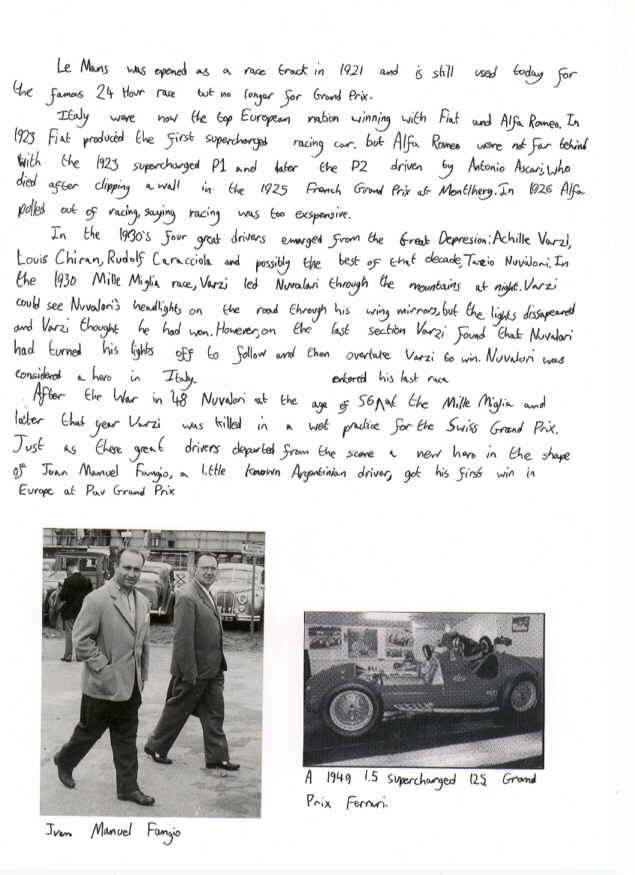 Le Mans was opened as a race track in 1921 and is still used today for
the famous 24 Hour race but no longer for Grand Prix.
Italy were now the top European nation winning with Fiat and Alfa Romeo. In
1923 Fiat produced the first supercharged racing car. but Alfa Romeo were not far behind
with the 1923 supercharged P1 and later the P2 driven by Antonio Ascari, who
died after clipping a wall in the 1925 French Grand Prix at Montlhery. In 1926 Alfa
polled out of racing, saying racing was too exspensive.
In the 1930's four great drivers emerged from the Great Depresion: Achille Varzi,
Louis Chiran, Rudolf Caracciola and possibly the best of that decade, Tazio Nuvalori. In
the 1930 Mille Miglia race, Varzi led Nuvalari through the mountains at night. Varzi
could see Nuvalori's headlights on the road through his wing mirrors, but the lights dissapeared
and Varzi thought he had won. However, on the last section Varzi found that Nuvalori
had turned his lights off to follow and then overtake Varzi to win. Nuvalori was
considered a hero in Italy.
entered his last race
After the War in 48 Nuvalori at the age of 56 ^ at the Mille Miglia and
later that year Varzi was killed in a wet practice for the Swiss Grand Prix.
Just as these great drivers departed from the scene a new hero in the shape
of Juan Manuel Fangio, a little known Argentinian driver, got his first win in
Europe at Pav Grand Prix
A 1949 1.5 supercharged 125 Grand
Prix Ferrari.
Juan Manuel Fangio